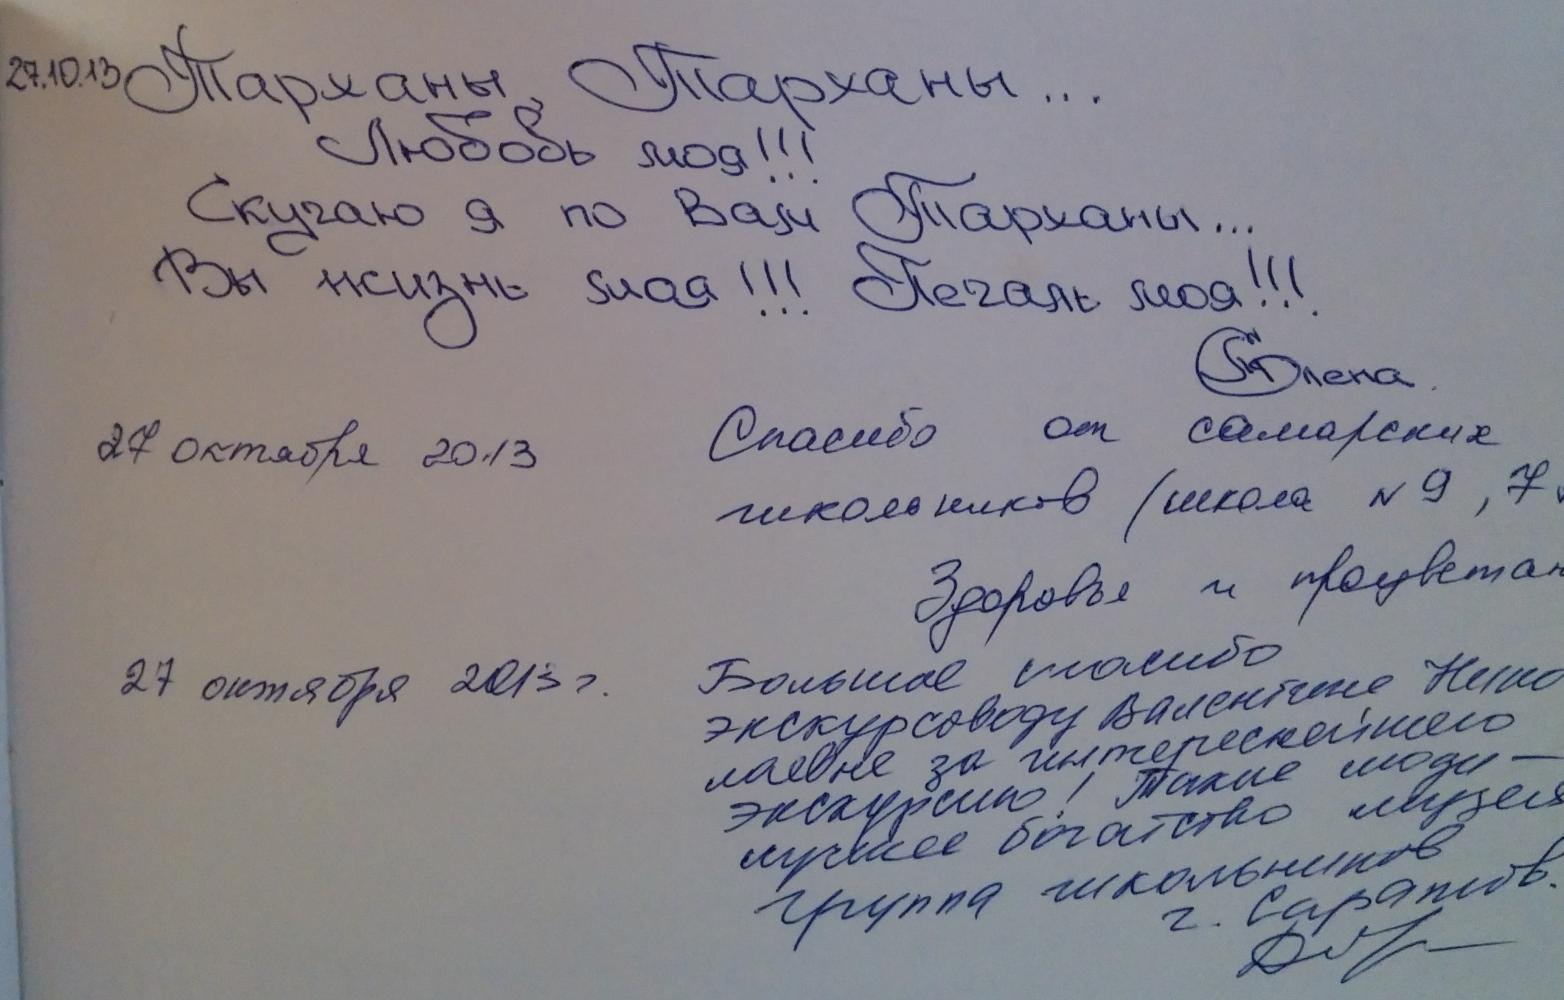 27.10.13 Тарханы, Тарханы...
Любовь моя!!!
Скучаю я по Вам Тарханы...
Вы жизнь моя!!! Печаль моя!!!
Елена.
27 октября 2013 Спасибо от самарских
школьников (школа №9, 7
Здоровья и процветан
27 октября 2013 г. Большое спасибо
экскурсоводу Валентине Нико
лаевне за интереснейшую
экскурсию! Такие люди —
лучшее богатство музея
группа школьников
г. Саратов.